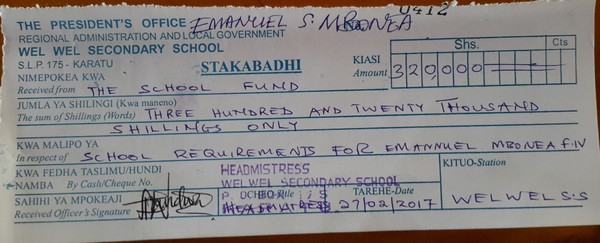 THE PRESIDENT'S OFFICE EMANUEL S. MBONEA 0412
REGIONAL ADMINISTRATION AND LOCAL GOVERNMENT
WEL WEL SECONDARY SCHOOL
S.L.P. 175 - KARATU
STAKABADHI
KIASI
Amount
Shs. Cts
320,000
NIMEPOKEA KWA
Received from THE SCHOOL FUND
JUMLA YA SHILINGI (Kwa maneno)
The sum of Shillings (Words) THREE HUNDRED AND TWENTY THOUSAND
SHILLINGS ONLY
KWA MALIPO YA
In respect of SCHOOL REQUIREMENTS FOR EMANNUEL MBONEA F.IV
KWA FEDHA TASLIMU/HUNDI
NAMBA By Cash/Cheque No.
HEADMISTRESS
WEL WEL SECONDARY SCHOOL
KITUO-Station
WELWEL S.S
SAHIHI YA MPOKEAJI
Received Officer's Signature
CHEO-Title
HEADMISTRESS
TAREHE-Date
27/02/2017